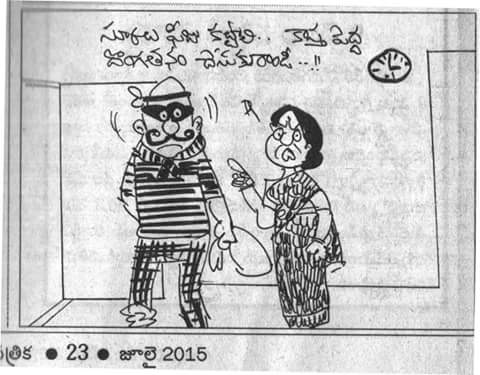 స్కూలు ఫీజు కట్టాలి.. కాస్త పెద్ద
దొంగతనం చేసుకురాండి..!!
త్రిక • 23 • జూలై 2015